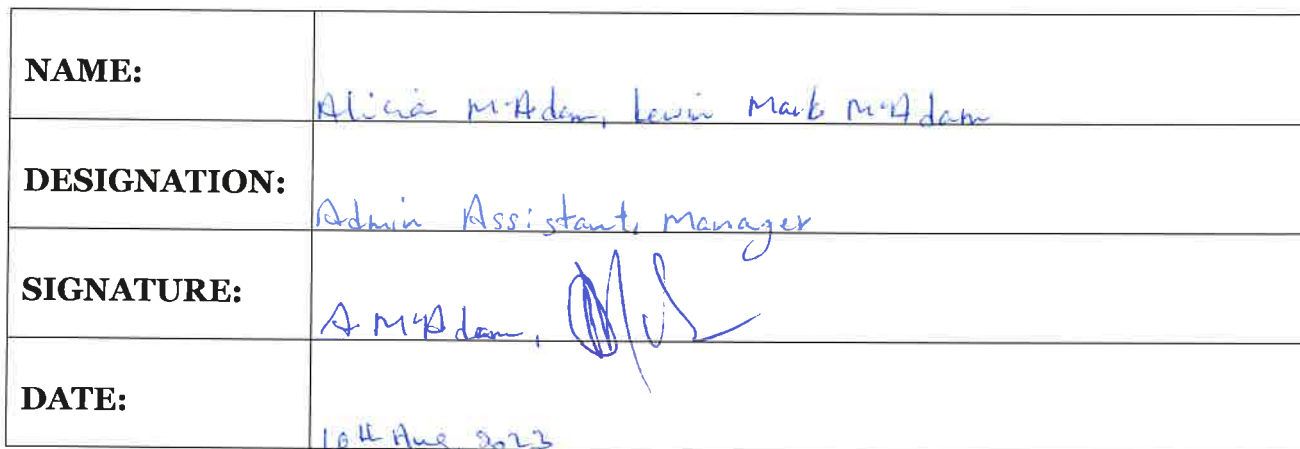 NAME: Alicia McAdam, Lewin Mark McAdam
DESIGNATION: Admin Assistant, Manager
SIGNATURE: A McAdam,
DATE: 10th Aug 2023